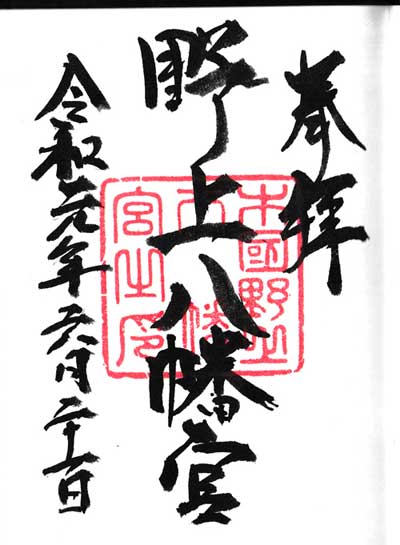 奉拝
木國野上八幡宮之印
野上八幡宮
令和元年六月二十一日